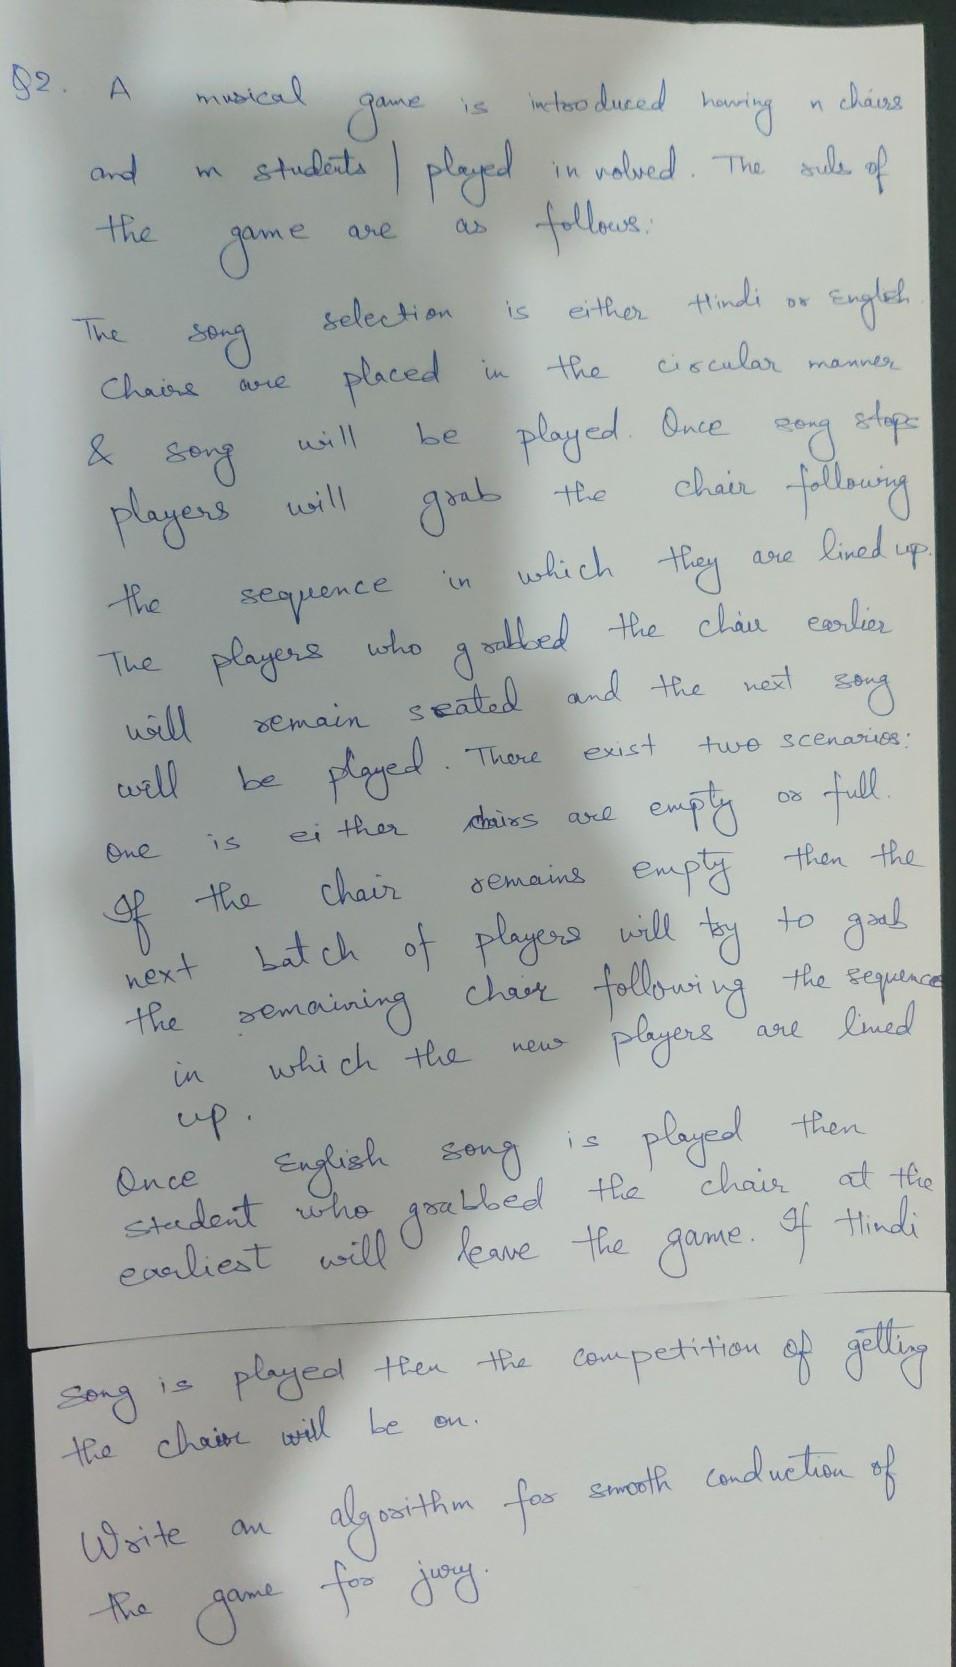 Q2. A musical game is introduced having n chairs
and m students / played involved. The rule of
the game are as follows:
The song selection is either Hindi or English.
Chairs are placed in the circular manner
& song will be played. Once song stops
players will grab the chair following
the sequence in which they are lined up.
The players who grabbed the chair earlier
will remain seated and the next song
will be played. There exist two scenarios:
One is either chairs are empty or full.
If the chair remains empty then the
next batch of players will try to grab
the remaining chair following the sequence
in which the new players are lined
up.
Once English song is played then
student who grabbed the chair at the
earliest will leave the game. If Hindi
song is played then the competition of getting
the chair will be on.
Write an algorithm for smooth conduction of
the game for jury.